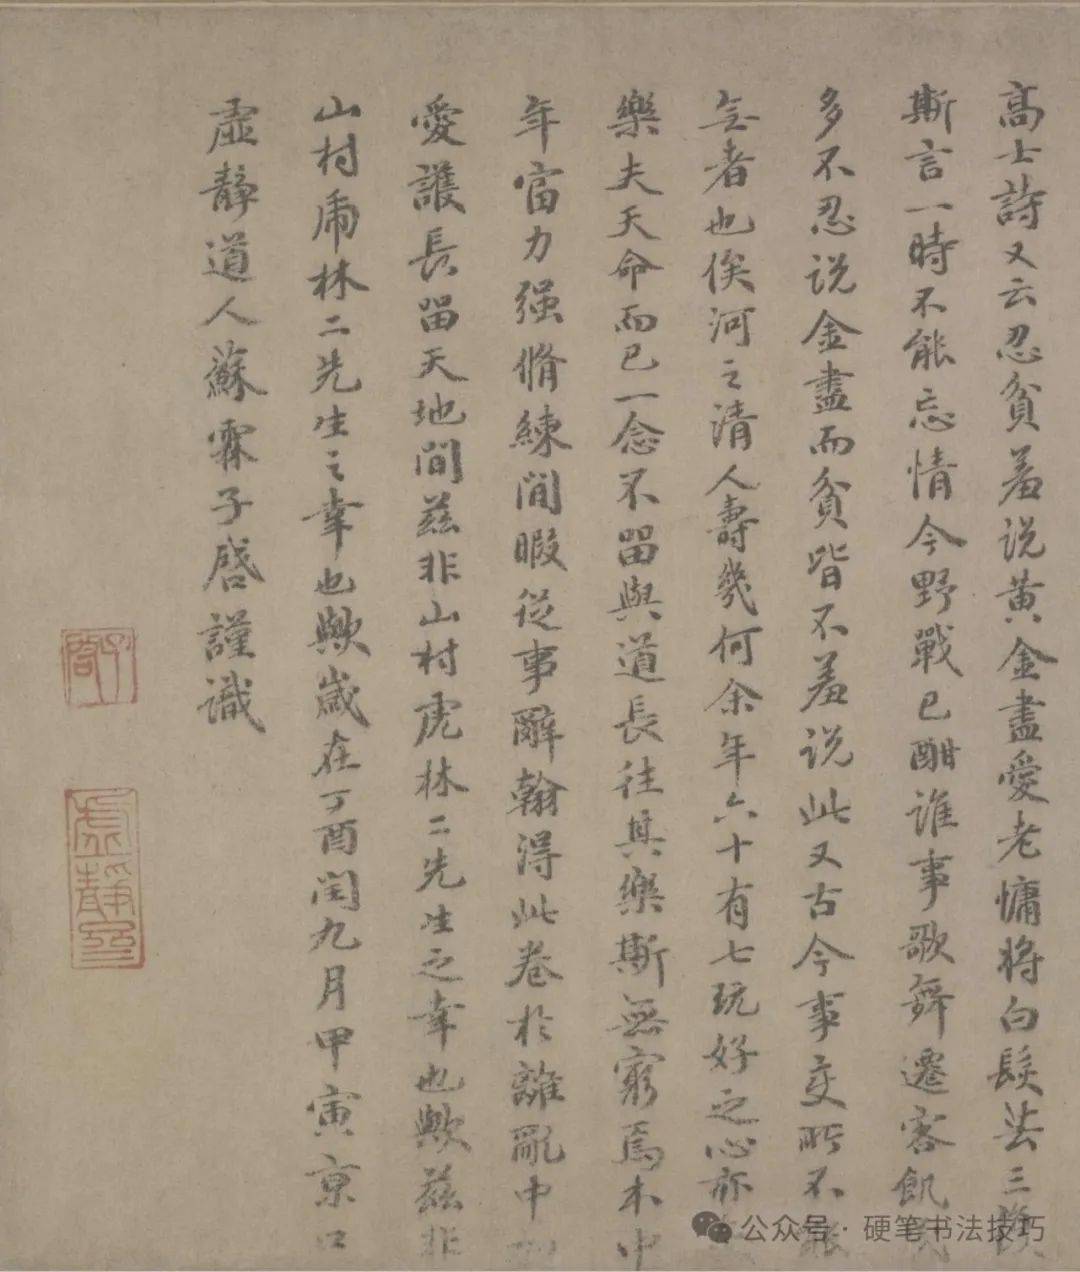 高士詩又云忍貧羞说黄金盡愛老慵将白髮
斯言一時不能忘情今野戰已酣谁事歌舞遷客飢
多不忍说金盡而貧皆不羞说此又古今事变所不能
者也俟河之清人壽幾何余年六十有七玩好之心亦
樂夫天命而已一念不留與道長往其樂斯無窮焉木中
年富力强脩練閒暇從事辭翰得此卷於離亂中
愛護長留天地間兹非山村虎林二先生之幸也歟兹非
山村虎林二先生之幸也歟歳在丁酉闰九月甲寅京口
虚靜道人蘇霖子啓謹識
子啓
虚靜
公众号·硬笔书法技巧